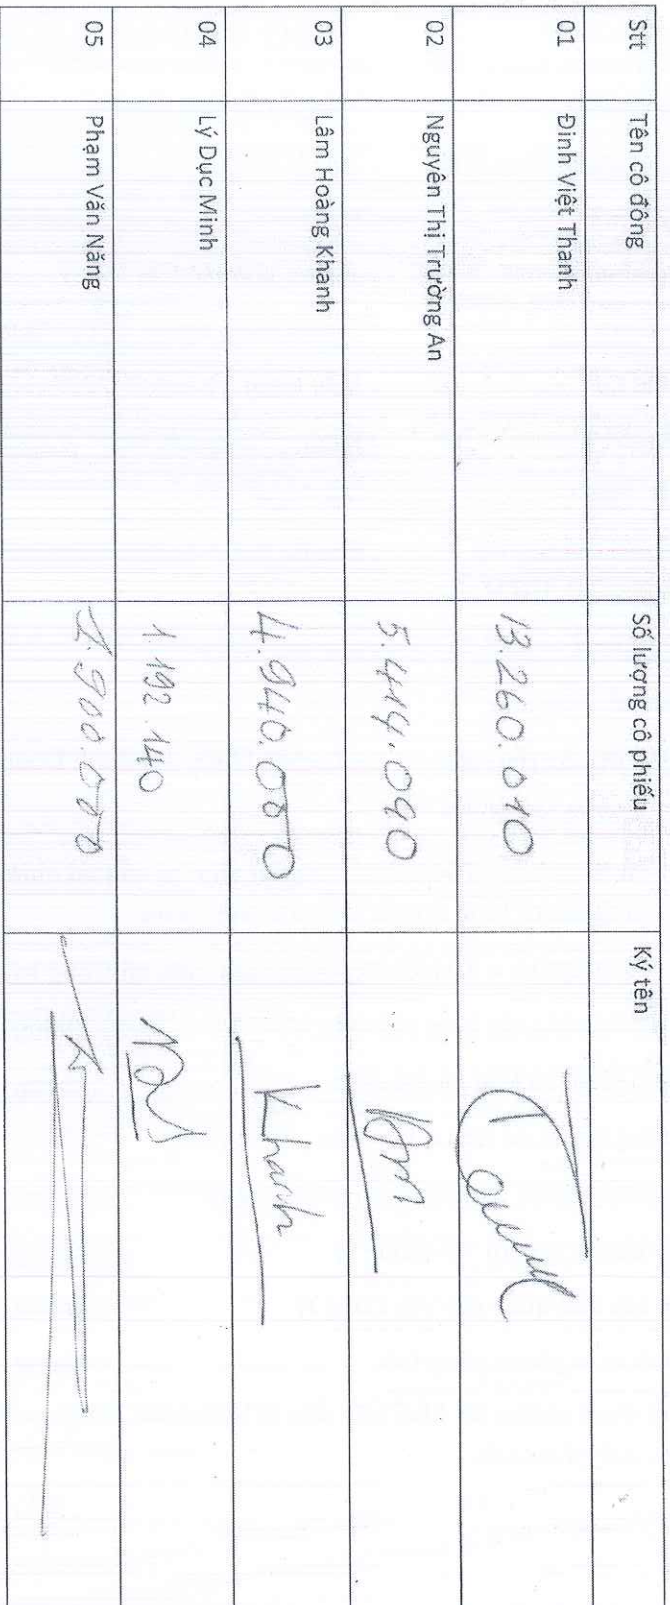 Stt Tên cổ đông Số lượng cổ phiếu Ký tên
01 Đinh Việt Thanh 13.260.010
02 Nguyễn Thị Trường An 5.414.090
03 Lâm Hoàng Khanh 4.940.000 Khanh
04 Lý Dục Minh 1.192.140
05 Phạm Văn Năng 1.900.000